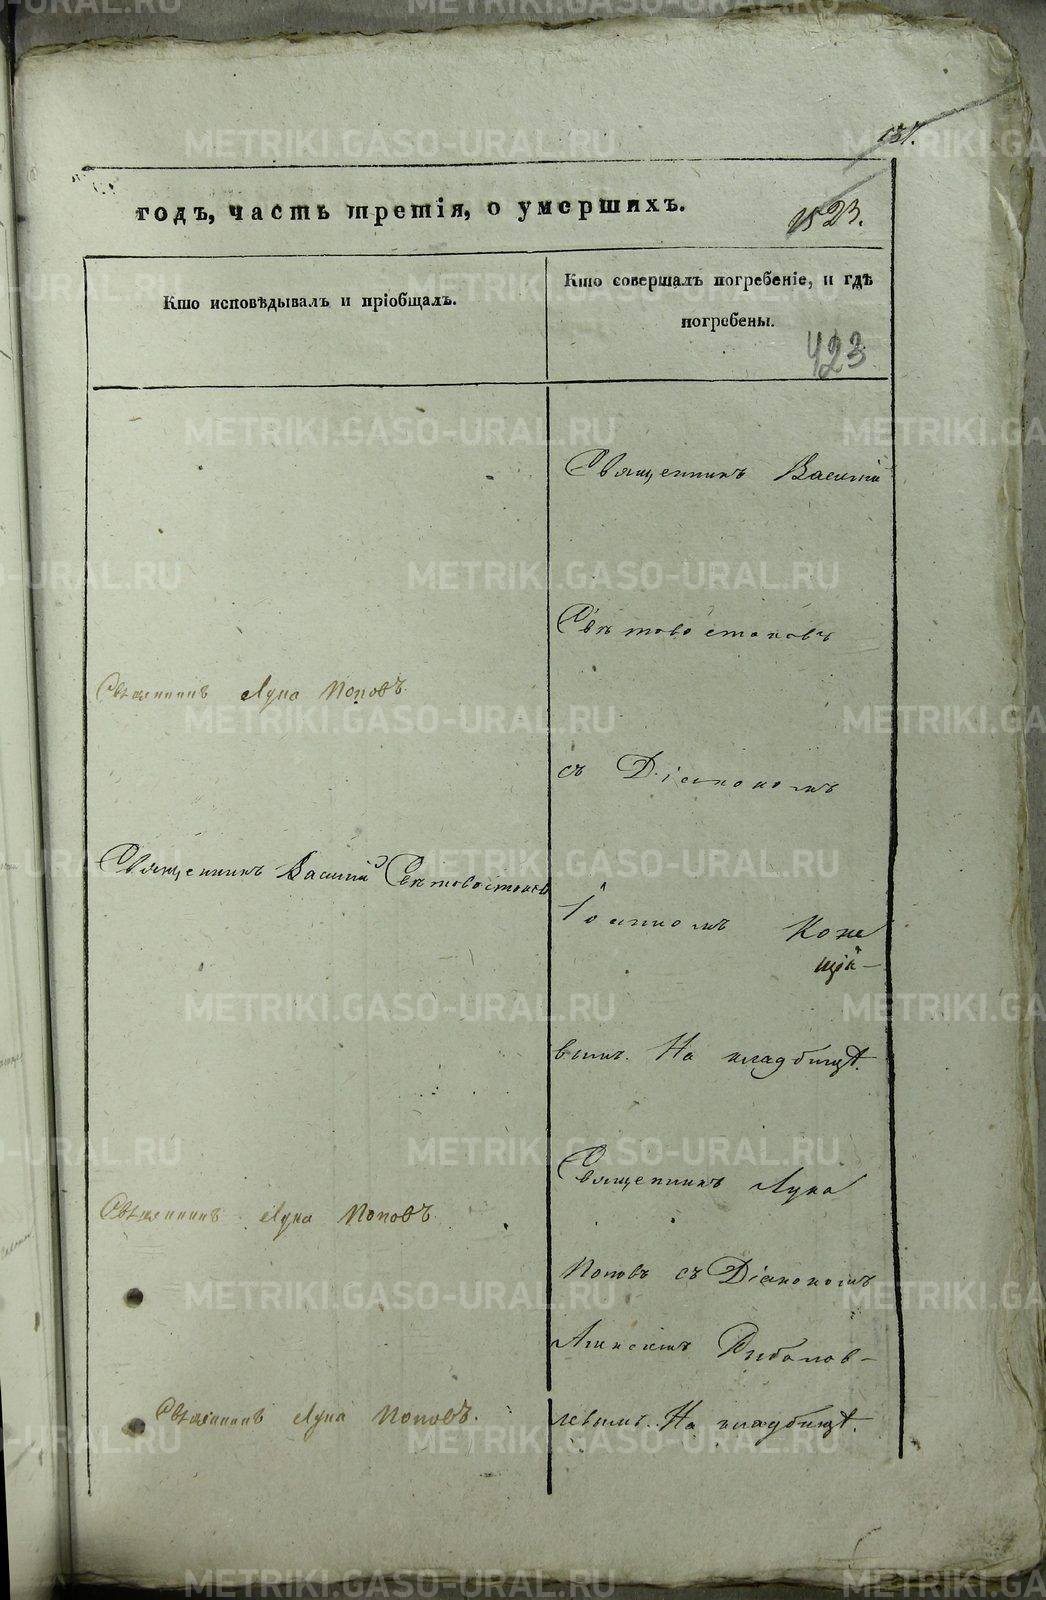 METRIKI.GASO-URAL.RU
137.
годъ, часть третія, о умершихъ.
1523.
Кто исповѣдывалъ и пріобщалъ.
Кто совершалъ погребеніе, и гдѣ
погребены.
423
Священникъ Василій
Свѣтовостоковъ
Священникъ Лука Поповъ.
съ Діакономъ
Священникъ Василій Свѣтовостоковъ
Іоанномъ
вымъ. На кладбищѣ.
Священникъ Лука
Священникъ Лука Поповъ.
Поповъ съ Діакономъ
Алексіемъ Рыболов-
Священникъ Лука Поповъ.
левымъ. На кладбищѣ.